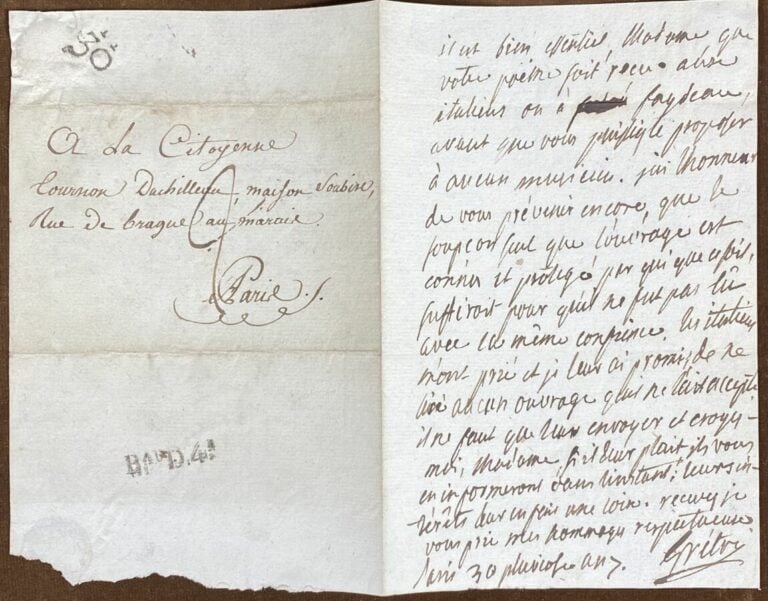 30
A La Citoyenne
Tournon Duchilleau, maison Soubise,
Rue de braque au marais.
a Paris
BAU D.4
il est bien essentiel, Madame que
votre poëme soit recu aux
italiens ou à faydeau,
avant que vous puissiés le proposer
à aucun musicien. j'ai lhonneur
de vous prévenir encore, que le
soupcon seul que l'ouvrage est
connu et protégé par qui que ce soit,
suffiroit pour qu'il ne fut pas lû
avec la même confience. les italiens
m'ont prié et je leur ai promis, de ne
lire aucun ouvrage qu'ils ne l'aist accepté
il ne faut que leur envoyer et croyés
moi, Madame s'il leur plait ils vous
en informeront dans linstant; leurs in-
térêts leur en fait une loix. recevez je
vous prie mes hommages respectueuse
Paris 30 pluviose an 7. Grétry